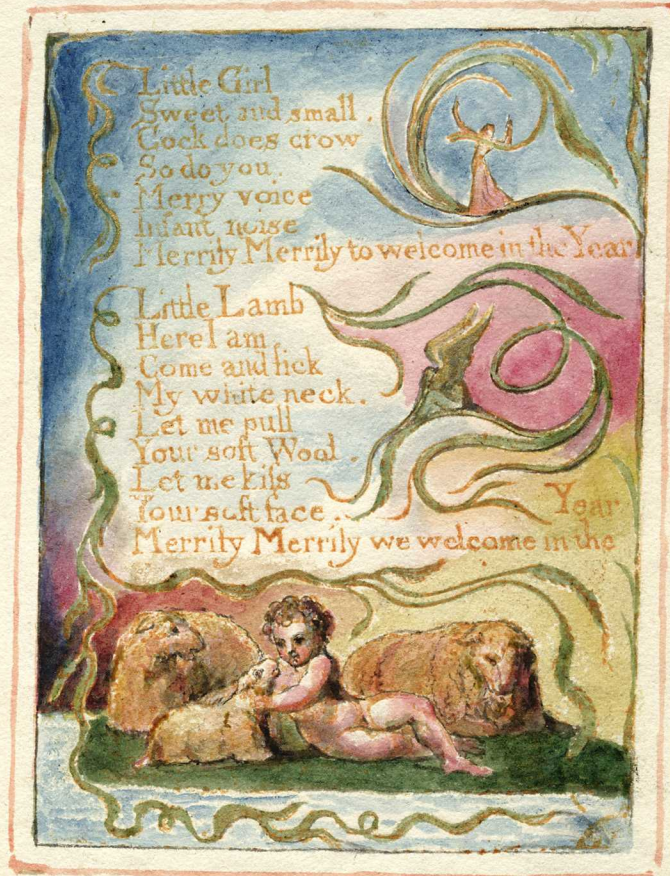 Little Girl
Sweet and small.
Cock does crow
So do you.
Merry voice
Infant noise
Merrily Merrily to welcome in the Year
Little Lamb
Here I am,
Come and lick
My white neck.
Let me pull
Your soft Wool.
Let me kiſs
Your soft face.
Merrily Merrily we welcome in the
Year